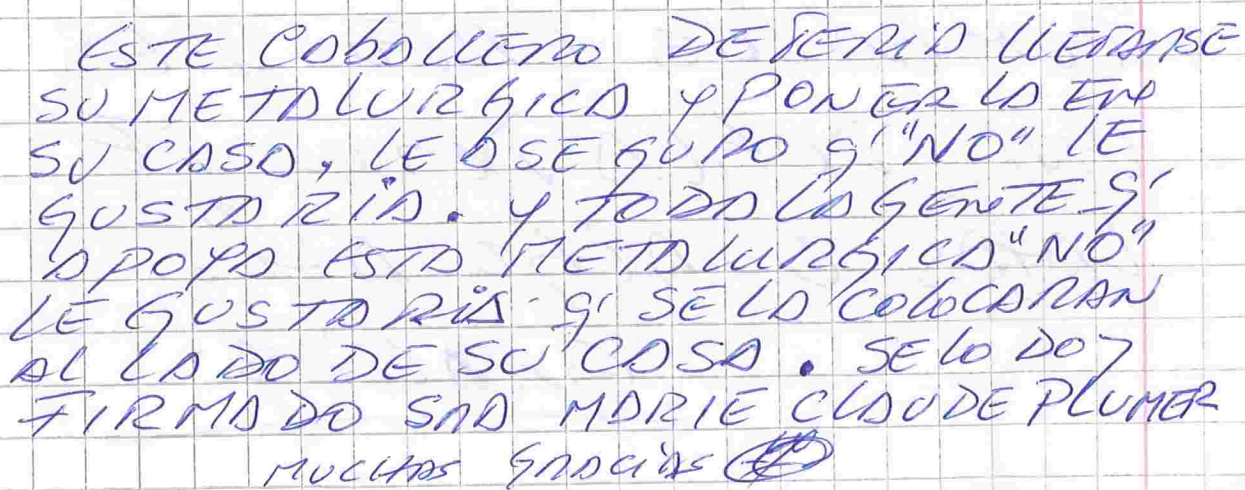 ESTE CABALLERO DEBERIA LLEVARSE
SU METALURGICA Y PONERLA EN
SU CASA, LE ASEGURO Q' "NO" LE
GUSTARÍA. Y TODA LA GENTE Q'
APOYA ESTA METALURGICA "NO"
LE GUSTARÍA Q' SE LA COLOCARAN
AL LADO DE SU CASA. SE LO DOY
FIRMADO SRA MARIE CLAUDE PLUMER
MUCHAS GRACIAS